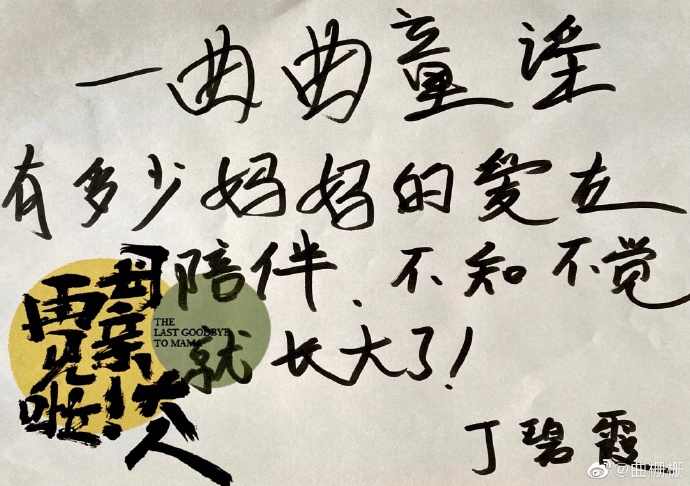 一曲曲童谣
有多少妈妈的爱在
陪伴、不知不觉
就长大了！
丁碧霞
再见啦！母亲大人
THE
LAST GOODBYE
TO MAMA
@曲栅栅